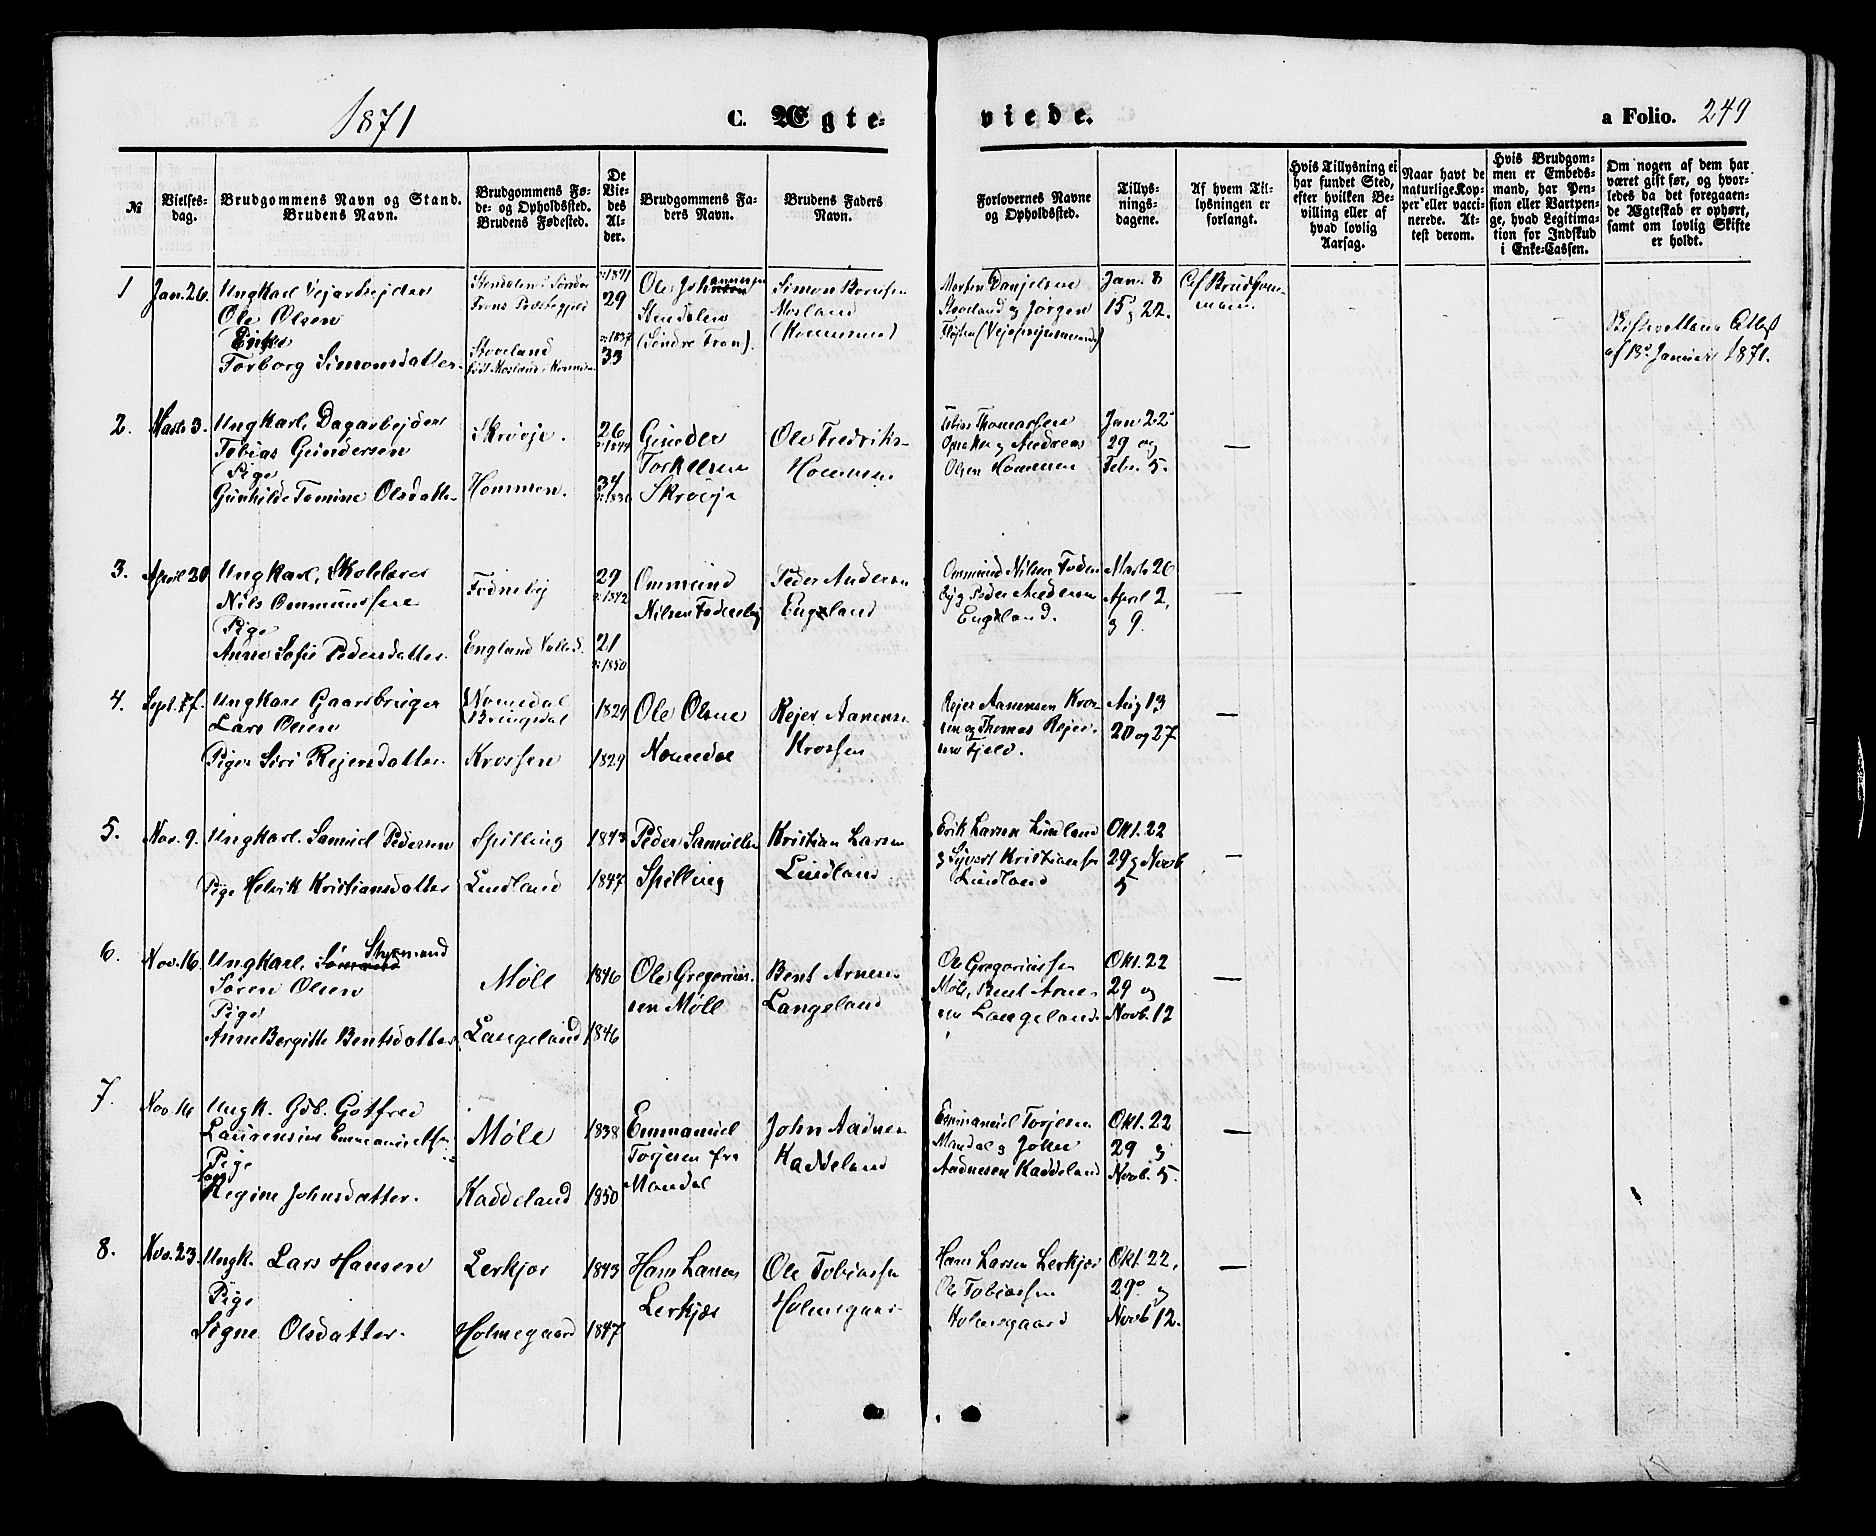 1871
C. Ægte-
viede.
a Folio. 249
№
Vielses-
dag.
Brudgommens Navn og Stand.
Brudens Navn.
Brudgommens Fø-
de- og Opholdssted.
Brudens Fødested.
De
Vie-
des
Al-
der.
Brudgommens Fa-
ders Navn.
Brudens Faders
Navn.
Forlovernes Navne
og Opholdssted.
Tillys-
nings-
dagene.
Af hvem Til-
lysningen er
forlangt.
Hvis Tillysning ei
har fundet Sted,
efter hvilken Be-
villing eller af
hvad lovlig
Aarsag.
Naar havt de
naturlige Kop-
per eller vacci-
nerede. At-
test derom.
Hvis Brudgom-
men er Embeds-
mand, har Pen-
sion eller Vartpen-
ge, hvad Legitima-
tion for Indskud
i Enke-Cassen.
Om nogen af dem har
været gift før, og hvor-
ledes da det foregaaen-
de Ægteskab er ophørt,
samt om lovlig Skifte
er holdt.
1 Jan. 26.
Ungkarl Vejarbejder
Ole Olsen
Enke
Torborg Simonsdatter.
Stendolen i Søndre
Frons Præstegjeld
Stoveland
29
1837
33
Stendolen
(Søndre Fron).
Mosland
Stoveland og Jørgen
Jan. 8
15 og 22.
Af Brudgom-
men.
af 13de Januar 1871.
2. Marts 3.
Ungkarl, Dagarbejder
Tobias Gundersen
Pige
Gunhilde Tomine Olsdatter
Skrøvje.
Hommen.
26
1844
34
1836
Gunder
Torkelsen
Skrøvje
Ole Fredriks-
Hommen
Tobias Thomassen
og Andreas
Olsen Hommen
Jan. 22
29 og
Febr. 5.
—
3. April 20
Ungkarl, Skolelærer
Nils Ommundsen
Pige
Anne Sofie Pedersdatter
Fodneby
England
29
1842
21
1850
Ommund
Nilsen Fodneby
Peder Andersen
England
Ommund Nilsen Fodne-
by og Peder Andersen
England.
Marts 26
April 2,
og 9.
—
4. Sept. 7
Ungkarl Gaardbruger
Lars Olsen
Pigen Siri Rejersdatter
Nomedal
Krossen
1829
1829
Ole Olsen
Nomedal
Rejer Aanensen
Krossen
Rejer Aanensen Kros-
sen og Thomas Rejer-
sen Fjeld.
Aug 13
20 og 27
—
5. Nov. 9.
Ungkarl. Samuel Pedersen
Pige Helvik Kristiansdatter
Spilling
Lindland
1843
1847
Peder Samuelsen
Spilling
Kristian Larsen
Lindland
Erik Larsen Lindland
og Syvert Kristiansen
Lindland
Okt. 22
29 og Novb
5
—
6. Nov. 16.
Ungkarl, Styrmand
Søren Olsen
Pige
Anne Bergitte Bentsdatter
Møll
Langeland
1846
1846
Ole Gregorius-
sen Møll
Bent Arnesen
Langeland
Ole Gregoriussen
Møll, Bent Arne-
sen Langeland.
Okt. 22
29 og
Novb. 12
—
7. Nov. 16
Ungk. Gdb. Gotfred
Laurensius Emmanuelsen
Pige
Regine Johnsdatter.
Møll
Kaddeland
1838
1850
Emmanuel
Torjesen fra
Mandal
John Aadnesen
Kaddeland
Emmanuel Torjesen
Mandal og John
Aadnesen Kaddeland
Okt. 22
29 og
Novb. 5.
—
8. Nov. 23.
Ungk. Lars Hansen
Pige
Signe Olsdatter.
Lerkjær
Holmegaard
1843
1847
Hans Larsen
Lerkjær
Ole Tobiassen
Holmegaard
Hans Larsen Lerkjær
Ole Tobiassen
Holmegaard
Okt 22,
29 og
Novb 12.
—